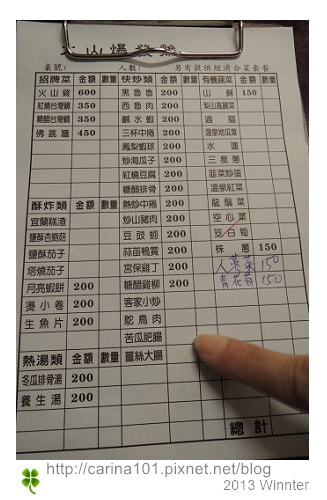 火山爆發雞
桌號: 人數: 另有提供經濟合菜套餐
招牌菜 金額 數量 快炒類 金額 數量 有機蔬菜 金額 數量
火山雞 600 黑魯魯 200 山蘇 150
紅燒台灣鯛 350 西魯肉 200 梨山高麗菜
糖醋台灣鯛 350 鹹水蝦 200 過貓
佛跳牆 450 三杯中捲 200 溫泉地瓜葉
鳳梨蝦球 200 水蓮
炒海瓜子 200 三星蔥
紅燒豆腐 200 韭菜炒蛋
糖醋排骨 200 溫泉紅菜
酥炸類 金額 數量 熱炒中捲 200 龍鬚菜
宜蘭糕渣 炒山豬肉 200 空心菜
鹽酥杏鮑菇 豆豉蚵 200 筊白筍
鹽酥茄子 蒜苗鴨賞 200 株蔥 150
塔燒茄子 宮保雞丁 200 人蔘菜 150
月亮蝦餅 200 糖醋雞柳 200 青花筍 150
燙小卷 200 客家小炒
生魚片 200 鴕鳥肉
苦瓜肥腸
熱湯類 金額 數量 薑絲大腸
冬瓜排骨湯 200
養生湯 200
總計
http://carina101.pixnet.net/blog
2013 Winnter